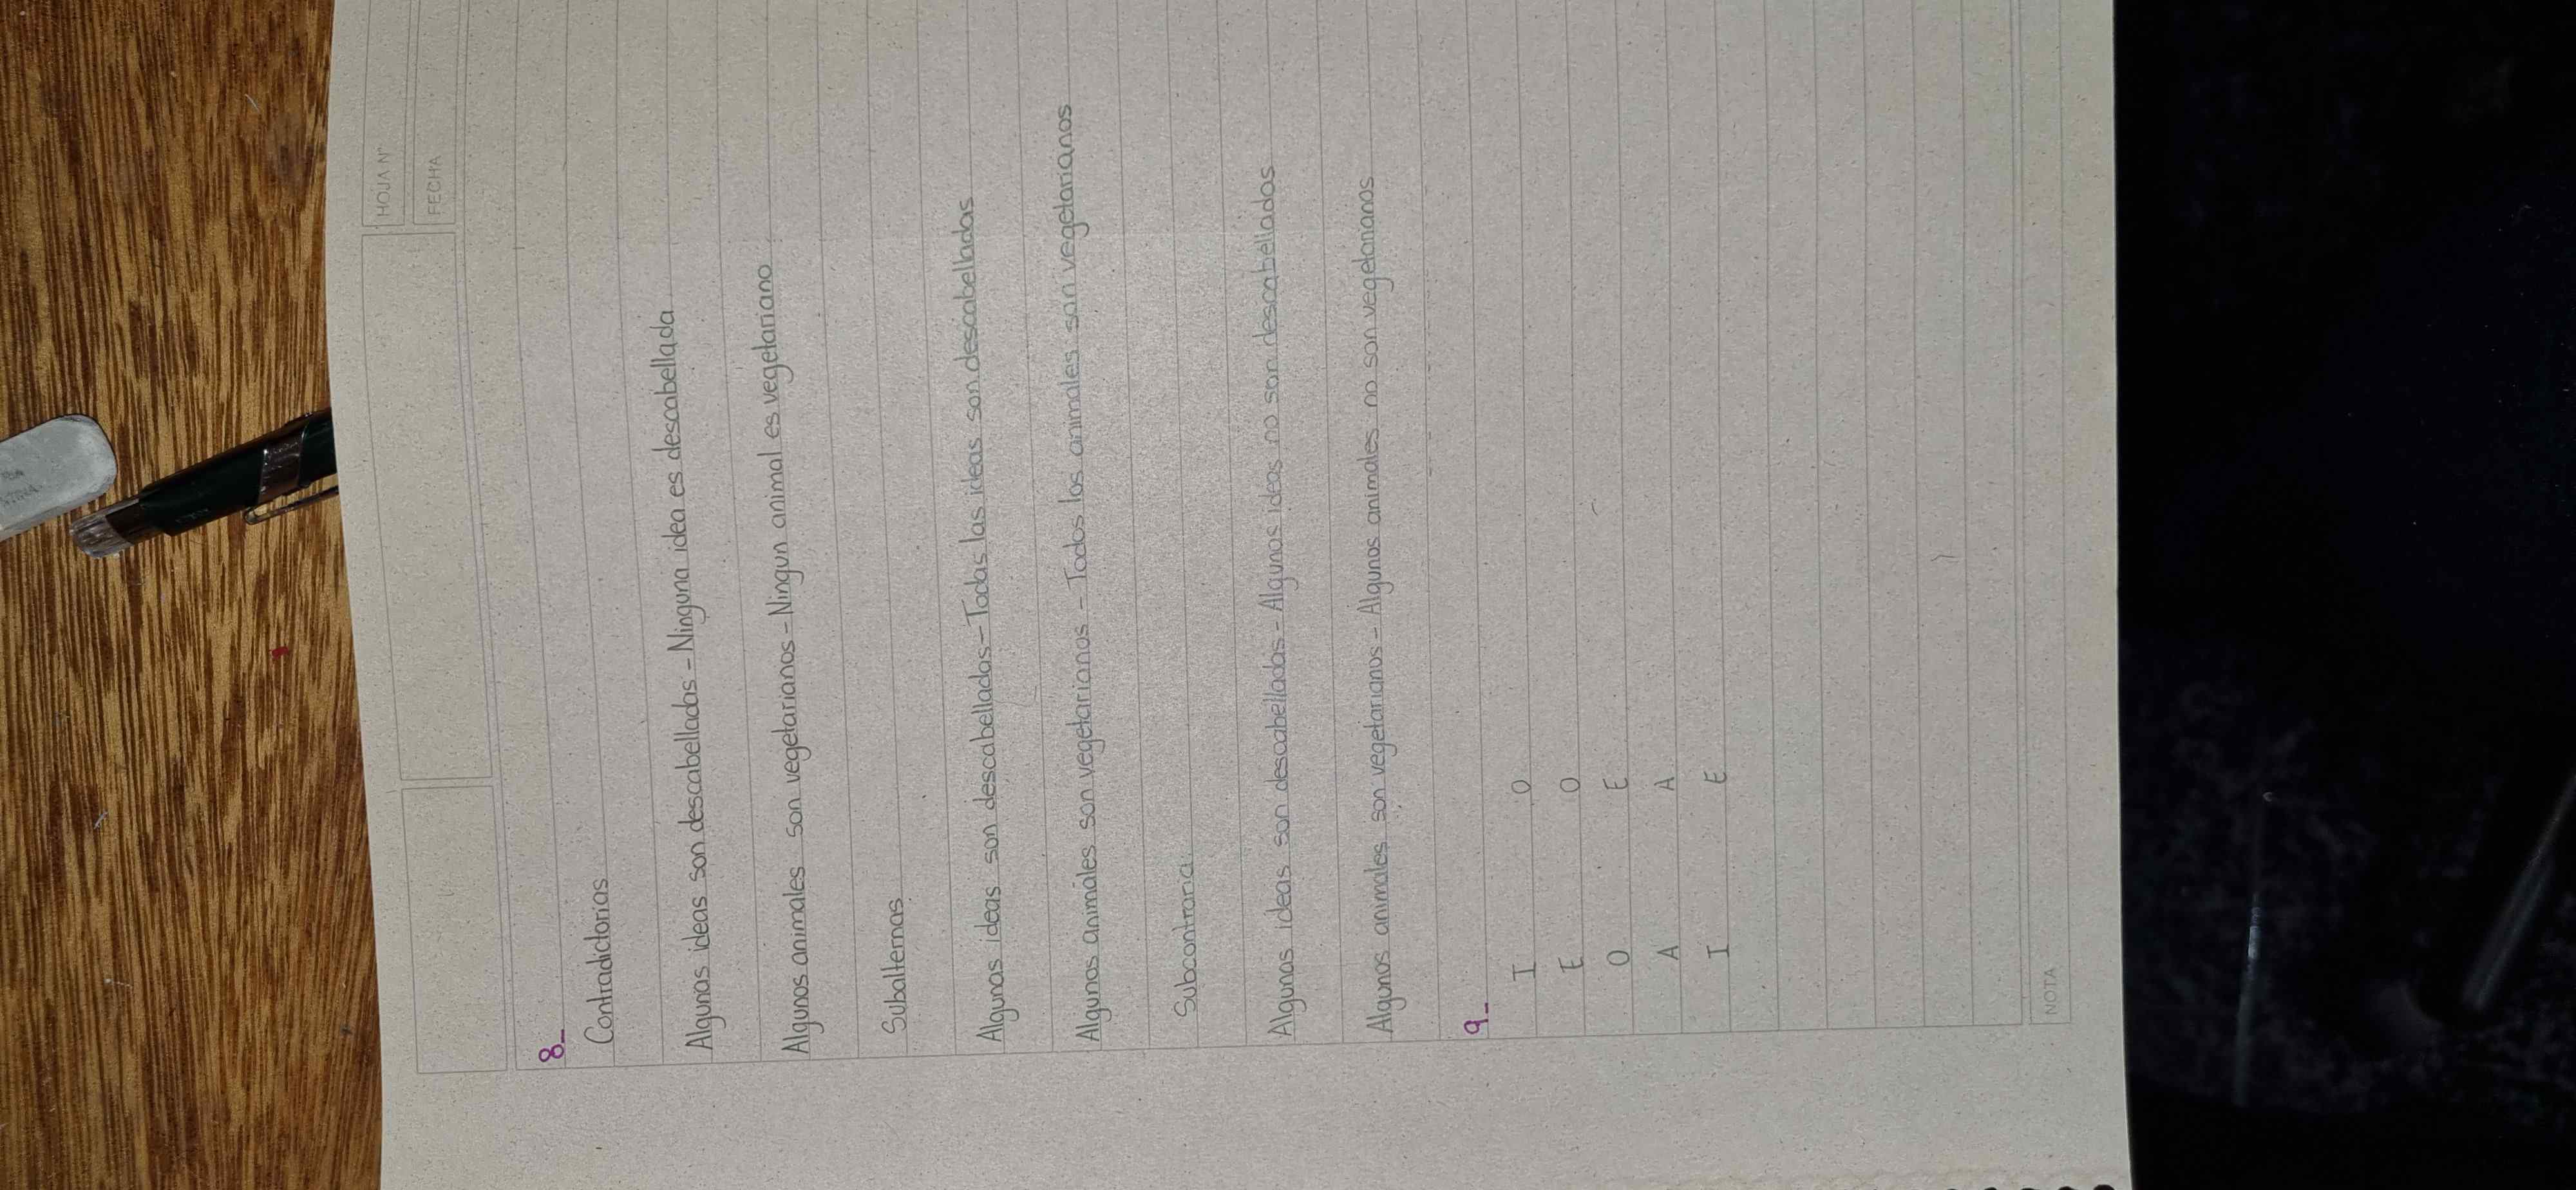 HOJA N°
FECHA
8_
Contradictorias
Algunas ideas son descabelladas - Ninguna idea es descabellada
Algunos animales son vegetarianos - Ningun animal es vegetariano
Subalternas
Algunas ideas son descabelladas - Todas las ideas son descabelladas
Algunos animales son vegetarianos - Todos los animales son vegetarianos
Subcontraria
Algunas ideas son descabelladas - Algunas ideas no son descabelladas
Algunos animales son vegetarianos - Algunos animales no son vegetarianos
9_
I O
E O
O E
A A
I E
NOTA